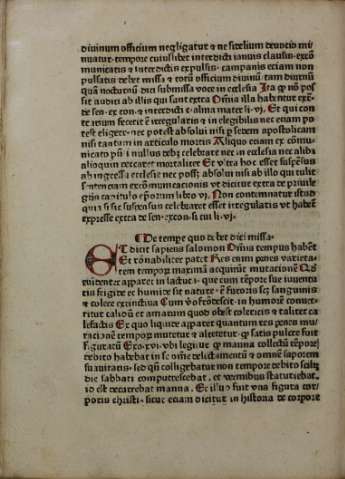 diuinum officium negligatur ⁊ ne fidelium deuotio mi
nuatur. tempore cuiuslibet interdicti ianuis clausis. excō
municatis ⁊ interdictis expulsis. campanis eciam non
pulsatis debet missa ⁊ totū officium diuinū. tam diurnū
quā nocturnū dici submissa voce in ecclesia Ita ꝙ nō pos
sit audiri ab illis qui sunt extra Om̄ia illa habentur extͣ
de sen. ex con. ⁊ de interdict. c. alma mater li. vi. Et qui con
tra istum fecerit ē irregularis ⁊ in elegibilis nec eciam po
test eligere. nec potest absolui nisi ꝑ sedem apostolicam
nisi tantum in articulo mortis Aliquo eciam ex cōmu
nicato pn̄t nullus debet celebrare nec in ecclesia nec alibi
alioquin peccaret mortaliter Et vltra hoc esset suspēsus
ab ingressu ecclesie nec posset absolui nisi ab illo qui tulit
sentenciam excōmunicationis vt dicitur extra de priuile
giis capitulo episcoꝝ libro vi. Non contaminatur
qui si sic suspensus celebraret esset irregularis vt habet
expresse extra de sen. excon. is cui li. vi.
De tempe quo debet dici missa.
ET dicit sapiens salomon Om̄ia tempus habēt
Et rōnabiliter patet Res enim penes varieta-
tem tempoꝝ maximā acquirūt mutacionē Qd̓
euidenter apparet in lacte. que cum tēpore sue iuuenta
tis frigide et humide sit nature. ē furoris sꝫ sanguinis
⁊ colere extinctiua Cum v̓o frōdescit. in humorē conuer
titur calidū et amarum quod obest colericis ⁊ taliter ca
lefactis Ex quo liquide apparet quantum res penes mu
tacionē tempoꝝ mutetur ⁊ alteretur. ꝙ satis pulcre fuit
figuratū Exo. xvi. vbi legitur ꝙ manna collectū tēpore
debito habebat in se om̄e delectamentū ⁊ omnē saporem
suauitatis. sed qn̄ colligebatur non tempore debito scilicꝫ
die sabbati computrescebat. et vermibus scaturiebat.
id est decurrebat manna. Et illud fuit vna figura cor
poris christi. sicut eciam dicitur in historia de corpore